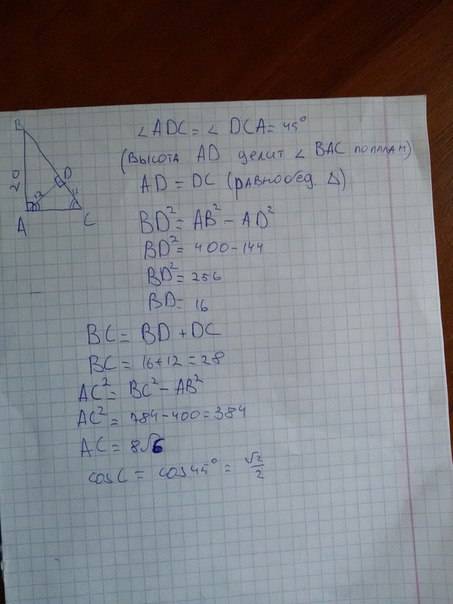 B
20
12
D
A
C
∠ADC = ∠DCA = 45°
(Высота AD делит ∠BAC пополам)
AD = DC (равнобед. Δ)
BD² = AB² - AD²
BD² = 400 - 144
BD² = 256
BD = 16
BC = BD + DC
BC = 16 + 12 = 28
AC² = BC² - AB²
AC² = 784 - 400 = 384
AC = 8√6
cosC = cos45° = √2/2